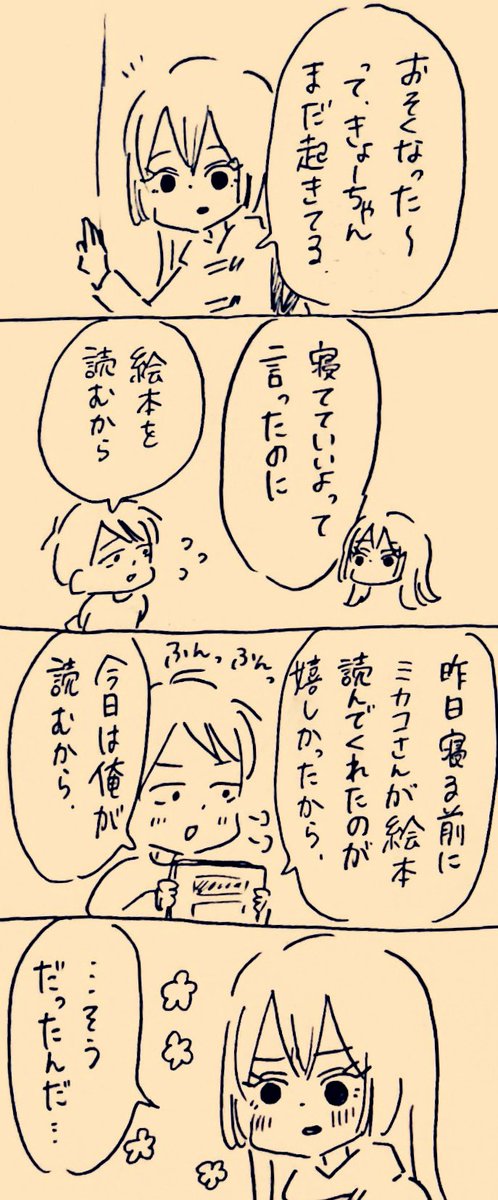 おそくなった〜
って、きょーちゃん
まだ起きてる
寝てていいよって
言ったのに
絵本を
読むから
昨日寝る前に
ミカコさんが絵本
読んでくれたのが
嬉しかったから、
ふんっふんっ
今日は俺が
読むから、
…そう
だったんだ…